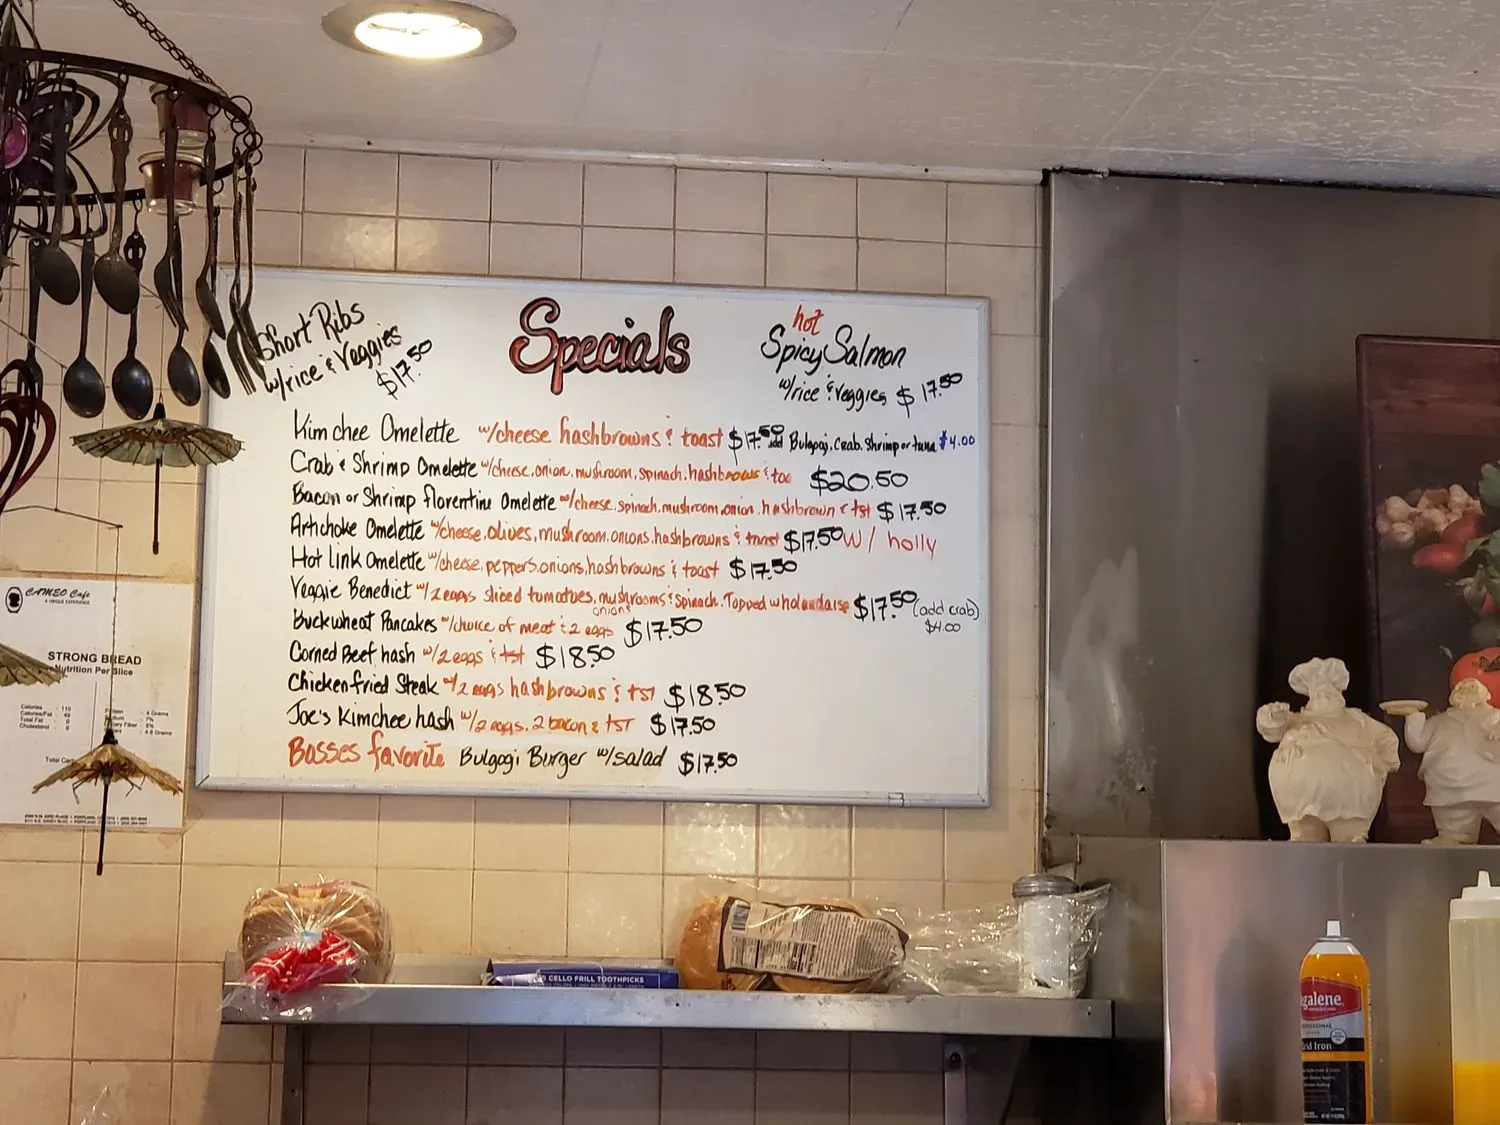 Specials
Short Ribs
w/rice & Veggies
$17.50
hot
Spicy Salmon
w/rice & veggies $17.50
Kim chee Omelette w/cheese hashbrowns & toast $17.50 add Bulgogi, Crab, Shrimp or tuna $4.00
Crab & Shrimp Omelette w/cheese, onion, mushroom, spinach, hashbrowns & toa $20.50
Bacon or Shrimp florentine Omelette w/cheese, spinach, mushroom, onion, hashbrown & tst $17.50
Artichoke Omelette w/cheese, olives, mushroom, onions, hashbrowns & toast $17.50 w/ holly
Hot link Omelette w/cheese, peppers, onions, hashbrowns & toast $17.50
Veggie Benedict w/2 eggs sliced tomatoes, mushrooms & spinach. Topped w holandaise $17.50 (add crab)
onions
$4.00
Buckwheat Pancakes w/choice of meat & 2 eggs $17.50
Corned Beef hash w/2 eggs & tst $18.50
Chicken fried Steak w/2 eggs hashbrowns & tst $18.50
Joe's Kimchee hash w/2 eggs, 2 bacon & tst $17.50
Bosses favorite Bulgogi Burger w/salad $17.50
CAMEO Cafe
A UNIQUE EXPERIENCE
STRONG BREAD
Nutrition Per Slice
Calories 110
Calories/Fat
Total Fat
Cholesterol
4 Grams
CELLO FRILL TOOTHPICKS
galene